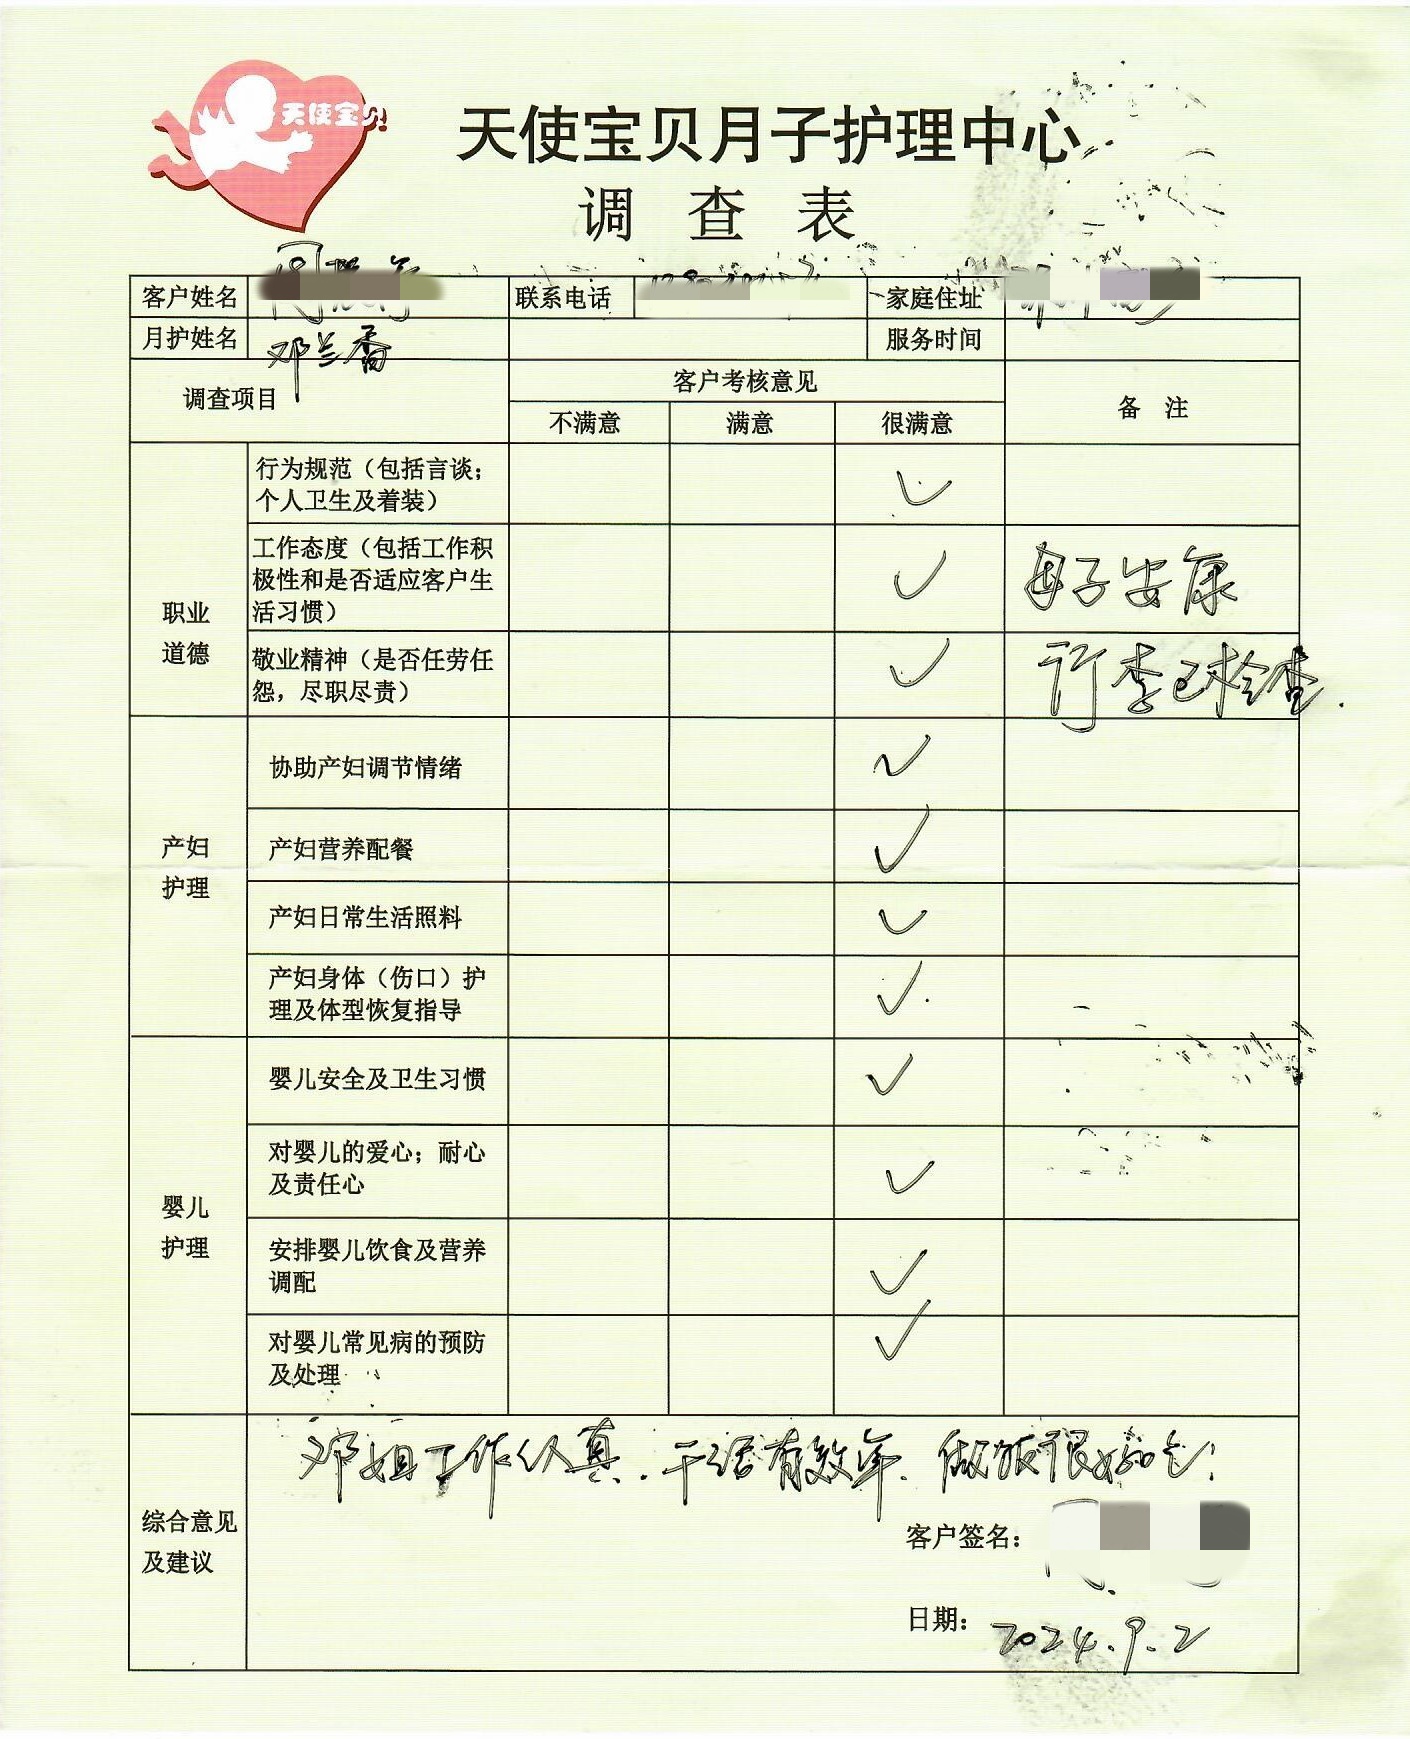 天使宝贝
天使宝贝月子护理中心
调 查 表
客户姓名 联系电话 家庭住址
月护姓名 邓兰香 服务时间
调查项目 客户考核意见 备 注
不满意 满意 很满意
职业
道德
行为规范（包括言谈；
个人卫生及着装） ✓
工作态度（包括工作积
极性和是否适应客户生
活习惯） ✓ 母子安康
敬业精神（是否任劳任
怨，尽职尽责） ✓ 行李已检查.
产妇
护理
协助产妇调节情绪 ✓
产妇营养配餐 ✓
产妇日常生活照料 ✓
产妇身体（伤口）护
理及体型恢复指导 ✓
婴儿
护理
婴儿安全及卫生习惯 ✓
对婴儿的爱心；耐心
及责任心 ✓
安排婴儿饮食及营养
调配 ✓
对婴儿常见病的预防
及处理 ✓
综合意见
及建议
邓姐工作认真.干活有效率.做饭很好吃!
客户签名：
日期：2024.9.2